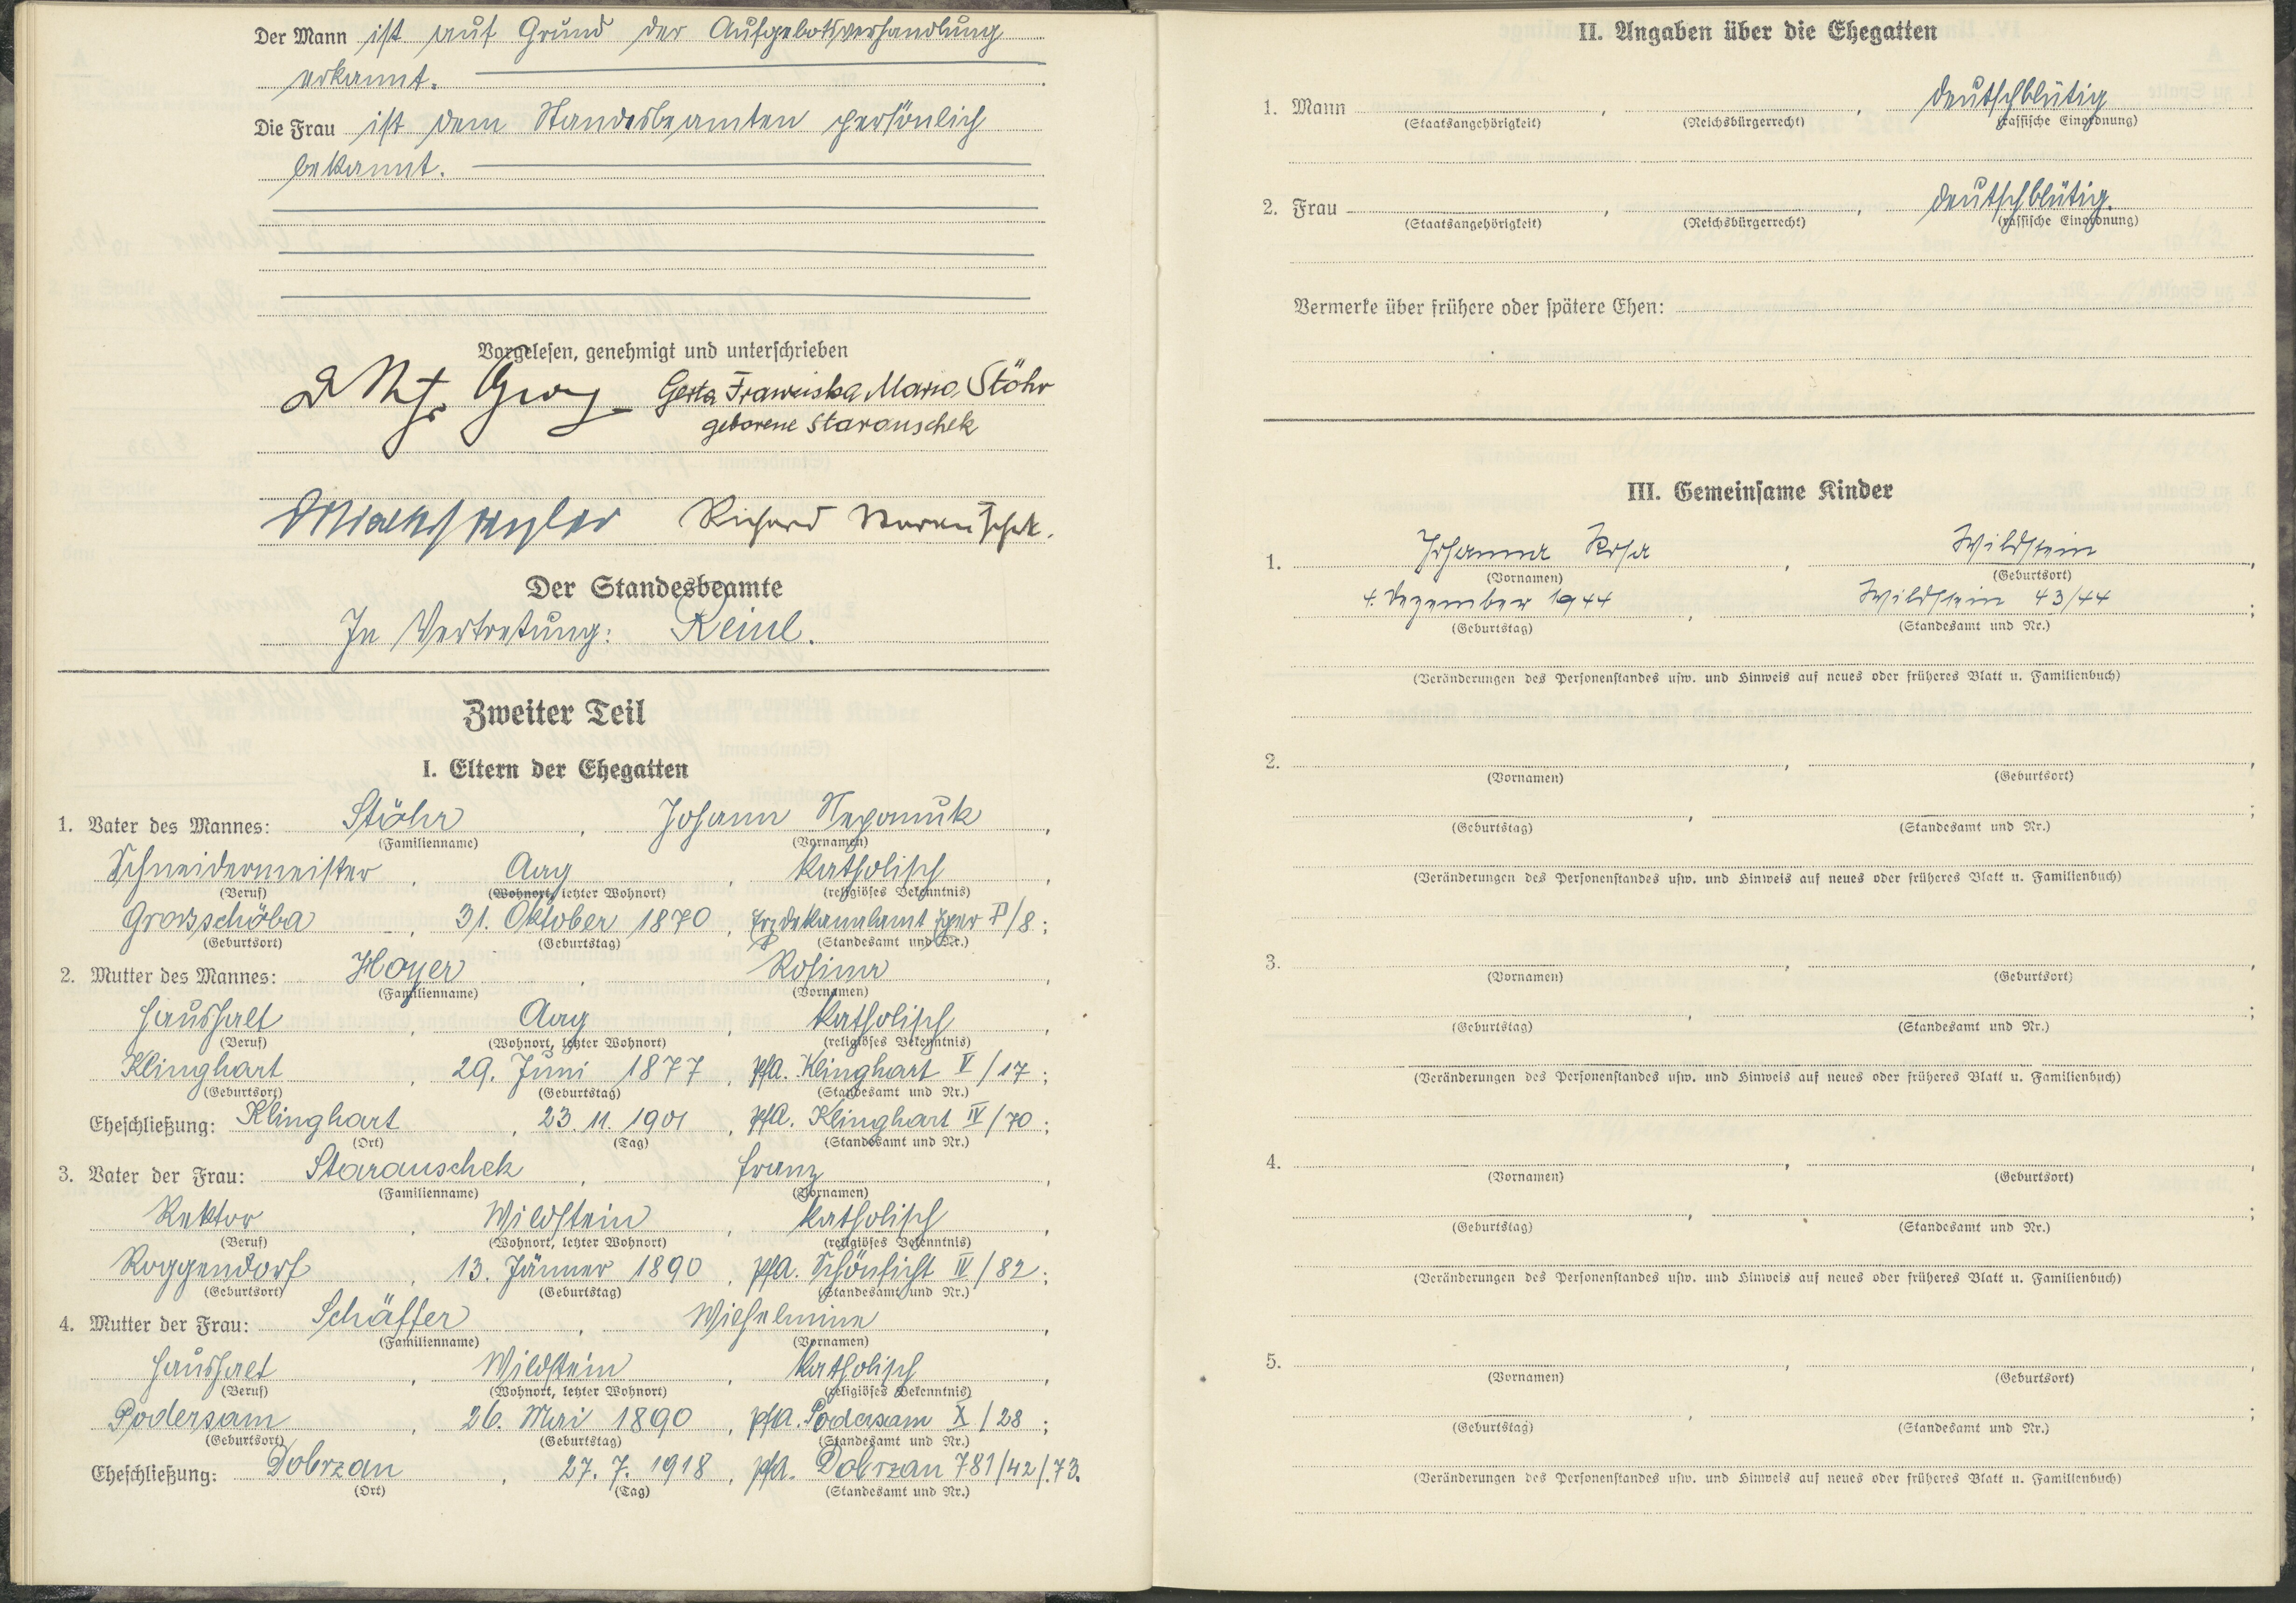 Der Mann ist auf Grund der Aufgebotsverhandlung
erkannt.
Die Frau ist dem Standesbeamten persönlich
bekannt.
Vorgelesen, genehmigt und unterschrieben
Gerta Franziska Maria Stöhr
geborene Starauschek
Richard Starauschek.
Der Standesbeamte
In Vertretung: Reinl.
Zweiter Teil
I. Eltern der Ehegatten
1. Vater des Mannes: Stöhr, Johann Nepomuk,
(Familienname) (Vornamen)
Schneidermeister, Aag, katholisch,
(Beruf) (Wohnort, letzter Wohnort) (religiöses Bekenntnis)
Grosschöba, 31. Oktober 1870, Erzdekanalamt Eger P/8;
(Geburtsort) (Geburtstag) (Standesamt und Nr.)
2. Mutter des Mannes: Hoyer, Rosina,
(Familienname) (Vornamen)
Haushalt, Aag, katholisch,
(Beruf) (Wohnort, letzter Wohnort) (religiöses Bekenntnis)
Klinghart, 29. Juni 1877, Pfa. Klinghart V/17;
(Geburtsort) (Geburtstag) (Standesamt und Nr.)
Eheschließung: Klinghart, 23. 11. 1901, Pfa. Klinghart IV/70;
(Ort) (Tag) (Standesamt und Nr.)
3. Vater der Frau: Starauschek, Franz,
(Familienname) (Vornamen)
Rektor, Wildstein, katholisch,
(Beruf) (Wohnort, letzter Wohnort) (religiöses Bekenntnis)
Roggendorf, 13. Jänner 1890, Pfa. Schönficht IV/82;
(Geburtsort) (Geburtstag) (Standesamt und Nr.)
4. Mutter der Frau: Schäffer, Wilhelmine,
(Familienname) (Vornamen)
Haushalt, Wildstein, katholisch,
(Beruf) (Wohnort, letzter Wohnort) (religiöses Bekenntnis)
Podersam, 26. Mai 1890, Pfa. Podersam X/28;
(Geburtsort) (Geburtstag) (Standesamt und Nr.)
Eheschließung: Dobrzan, 27. 7. 1918, Pfa. Dobrzan 781/42/.73.
(Ort) (Tag) (Standesamt und Nr.)
II. Angaben über die Ehegatten
1. Mann , , deutschblütig
(Staatsangehörigkeit) (Reichsbürgerrecht) (rassische Einordnung)
2. Frau , , deutschblütig.
(Staatsangehörigkeit) (Reichsbürgerrecht) (rassische Einordnung)
Vermerke über frühere oder spätere Ehen:
III. Gemeinsame Kinder
1. Johanna Rosa, Wildstein,
(Vornamen) (Geburtsort)
4. Dezember 1944, Wildstein 43/44;
(Geburtstag) (Standesamt und Nr.)
(Veränderungen des Personenstandes usw. und Hinweis auf neues oder früheres Blatt u. Familienbuch)
2. , ,
(Vornamen) (Geburtsort)
, ;
(Geburtstag) (Standesamt und Nr.)
(Veränderungen des Personenstandes usw. und Hinweis auf neues oder früheres Blatt u. Familienbuch)
3. , ,
(Vornamen) (Geburtsort)
, ;
(Geburtstag) (Standesamt und Nr.)
(Veränderungen des Personenstandes usw. und Hinweis auf neues oder früheres Blatt u. Familienbuch)
4. , ,
(Vornamen) (Geburtsort)
, ;
(Geburtstag) (Standesamt und Nr.)
(Veränderungen des Personenstandes usw. und Hinweis auf neues oder früheres Blatt u. Familienbuch)
5. , ,
(Vornamen) (Geburtsort)
, ;
(Geburtstag) (Standesamt und Nr.)
(Veränderungen des Personenstandes usw. und Hinweis auf neues oder früheres Blatt u. Familienbuch)